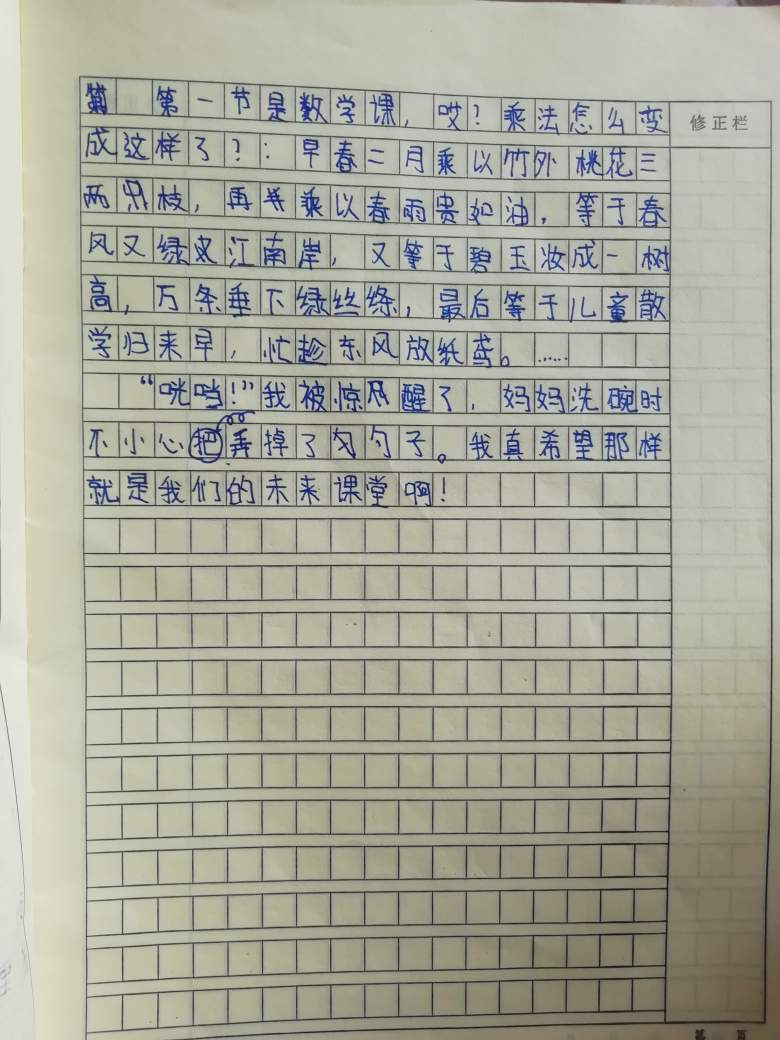 第一节是数学课，哎？乘法怎么变
修正栏
成这样了？：早春二月乘以竹外桃花三
两枝，再乘以春雨贵如油，等于春
风又绿江南岸，又等于碧玉妆成一树
高，万条垂下绿丝绦，最后等于儿童散
学归来早，忙趁东风放纸鸢。……
“咣当！”我被惊醒了，妈妈洗碗时
不小心把弄掉了勺子。我真希望那样
就是我们的未来课堂啊！
第 页